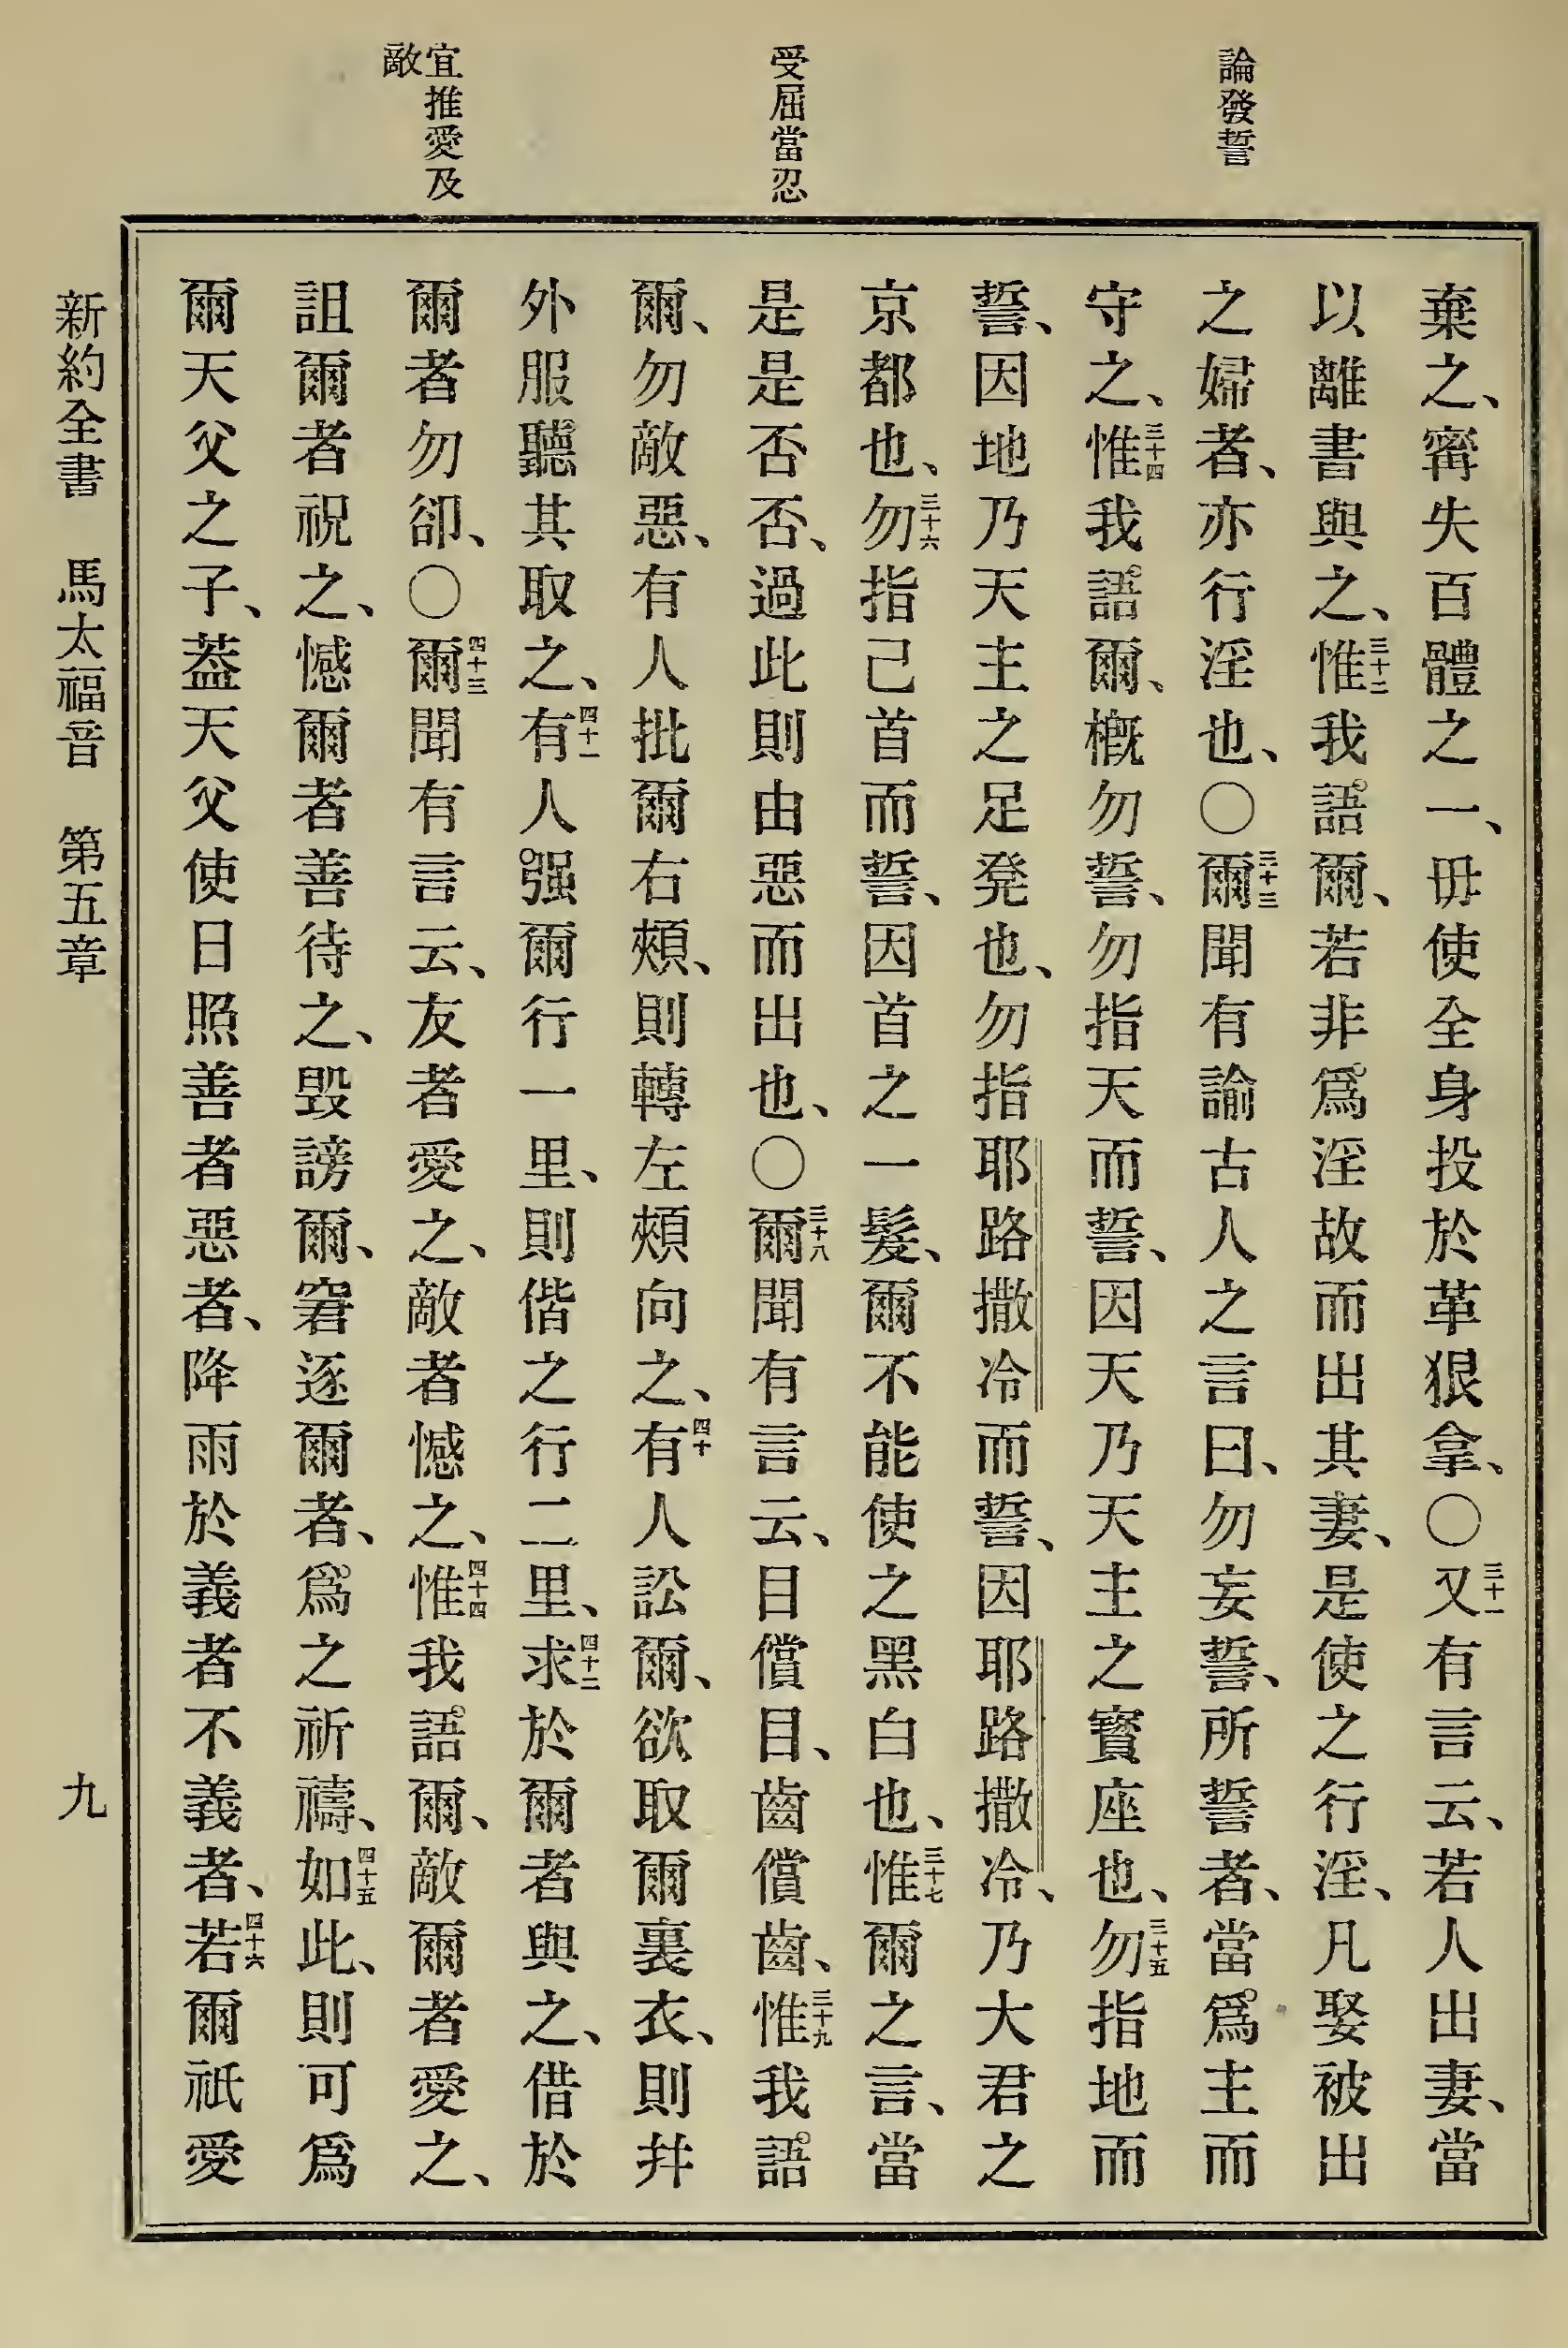 論發誓
受屈當忍
宜推愛及
敵
棄之、寗失百體之一、毋使全身投於革狠拿、〇三十一又有言云、若人出妻、當
以離書與之、三十二惟我語爾、若非爲淫故而出其妻、是使之行淫、凡娶被出
之婦者、亦行淫也、〇三十三爾聞有諭古人之言曰、勿妄誓、所誓者、當爲主而
守之、三十四惟我語爾、槪勿誓、勿指天而誓、因天乃天主之寶座也、三十五勿指地而
誓、因地乃天主之足凳也、勿指耶路撒冷而誓、因耶路撒冷、乃大君之
京都也、三十六勿指己首而誓、因首之一髮、爾不能使之黑白也、三十七惟爾之言、當
是是否否、過此則由惡而出也、〇三十八爾聞有言云、目償目、齒償齒、三十九惟我語
爾、勿敵惡、有人批爾右頰、則轉左頰向之、四十有人訟爾、欲取爾裏衣、則幷
外服聽其取之、四十一有人强爾行一里、則偕之行二里、四十二求於爾者與之、借於
爾者勿卻、〇四十三爾聞有言云、友者愛之、敵者憾之、四十四惟我語爾、敵爾者愛之、
詛爾者祝之、憾爾者善待之、毀謗爾、窘逐爾者、爲之祈禱、四十五如此、則可爲
爾天父之子、葢天父使日照善者惡者、降雨於義者不義者、四十六若爾祇愛
新約全書 馬太福音 第五章 九